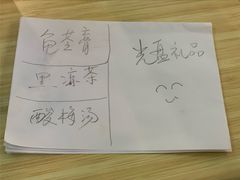 龟苓膏
黑凉茶
酸梅汤
光盘礼品